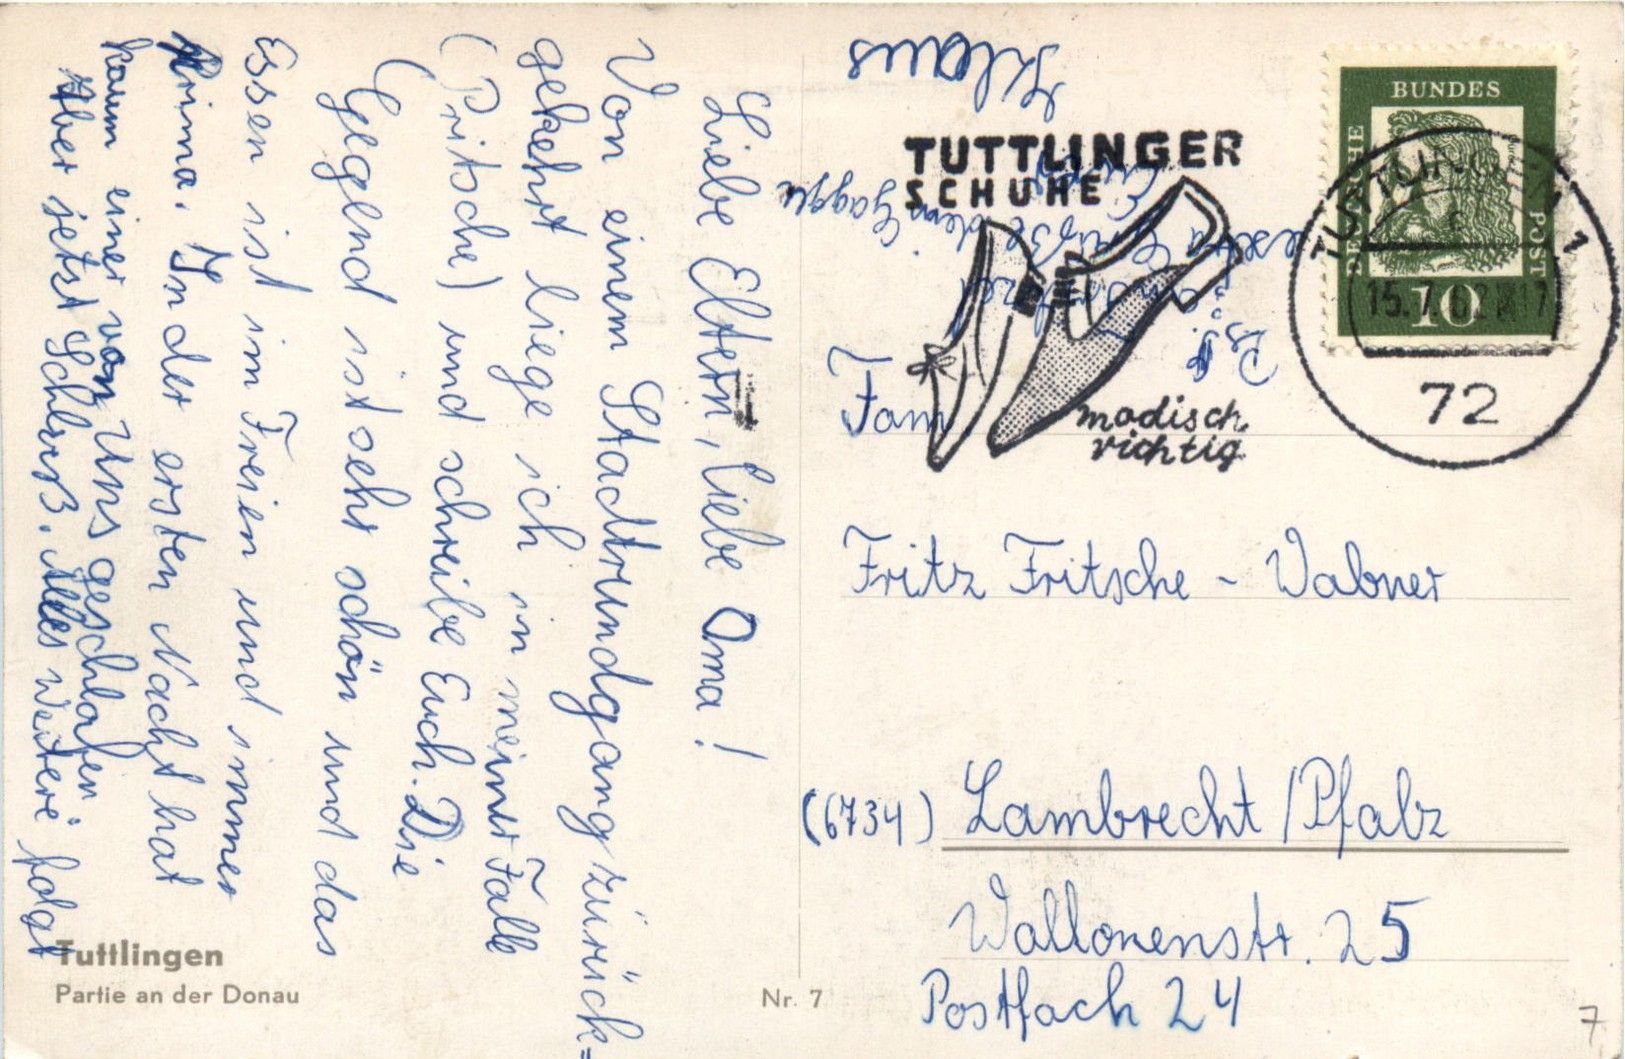 Liebe Eltern, liebe Oma!
Von einem Stadtrundgang zurück=
gekehrt liege ich in meiner Falle
(Pritsche) und schreibe Euch. Die
Gegend ist sehr schön und das
Essen ist im Freien und immer
prima. In der ersten Nacht hat
kaum einer von Uns geschlafen.
Aber jetzt Schluß. Alles Weitere folgt
Klaus
Grüße
TUTTLINGER
SCHUHE
modisch
richtig
DEUTSCHE
BUNDES
POST
10
TUTTLINGEN 1
c
15.7.62
17
72
Fam
Fritz Fritsche - Wabner
(6734) Lambrecht/Pfalz
Wallonenstr. 25
Postfach 24
Tuttlingen
Partie an der Donau
Nr. 7
7